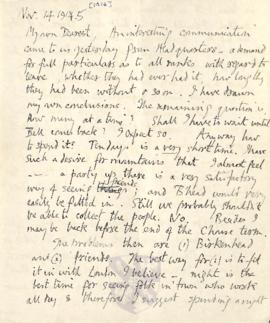 [1916]
Nov. 14 1915
My own Dearest, An interesting communication
came to us yesterday from Headquarters – a demand
for full particulars as to all ranks with regard to
leave, whether they had ever had it, how long
they had been without & soon. I have drawn
my own conclusions. The remaining question is
How many at a time? Shall I have to wait until
Bell comes back? I expect so. Anyway how
to spend it? Ten days is a very short time. I have
such a desire for mountains that I almost feel
-- a party of friends is a very satisfactory
way of seeing ; and BHead would very
easily be fitted in. Still we probably shouldn't
be able to collect the people. No. (Besides I
may be back before the end of the Chouse term
The problems then are (1) Birkenhead
and (2) friends. The best way for (1) is to fit
it in with London I believe — night is the
best time for seeing folk in town who work
all day & therefore I suggest spending a night